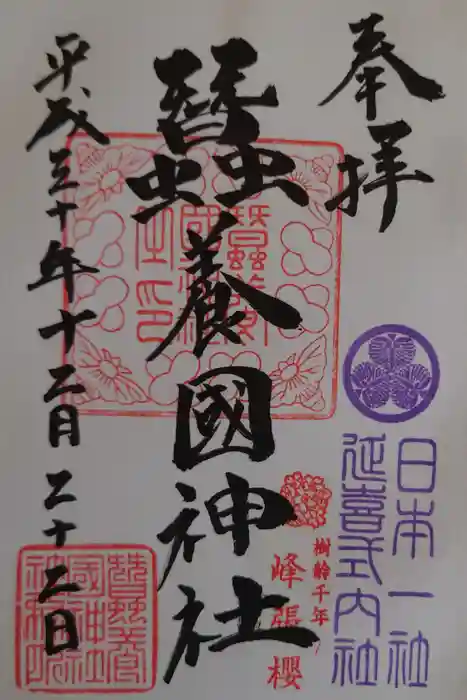 奉拝
日本一社
延喜式内社
樹齢千年
峰張櫻
蠶養國神社
平成三十年十二月二十二日